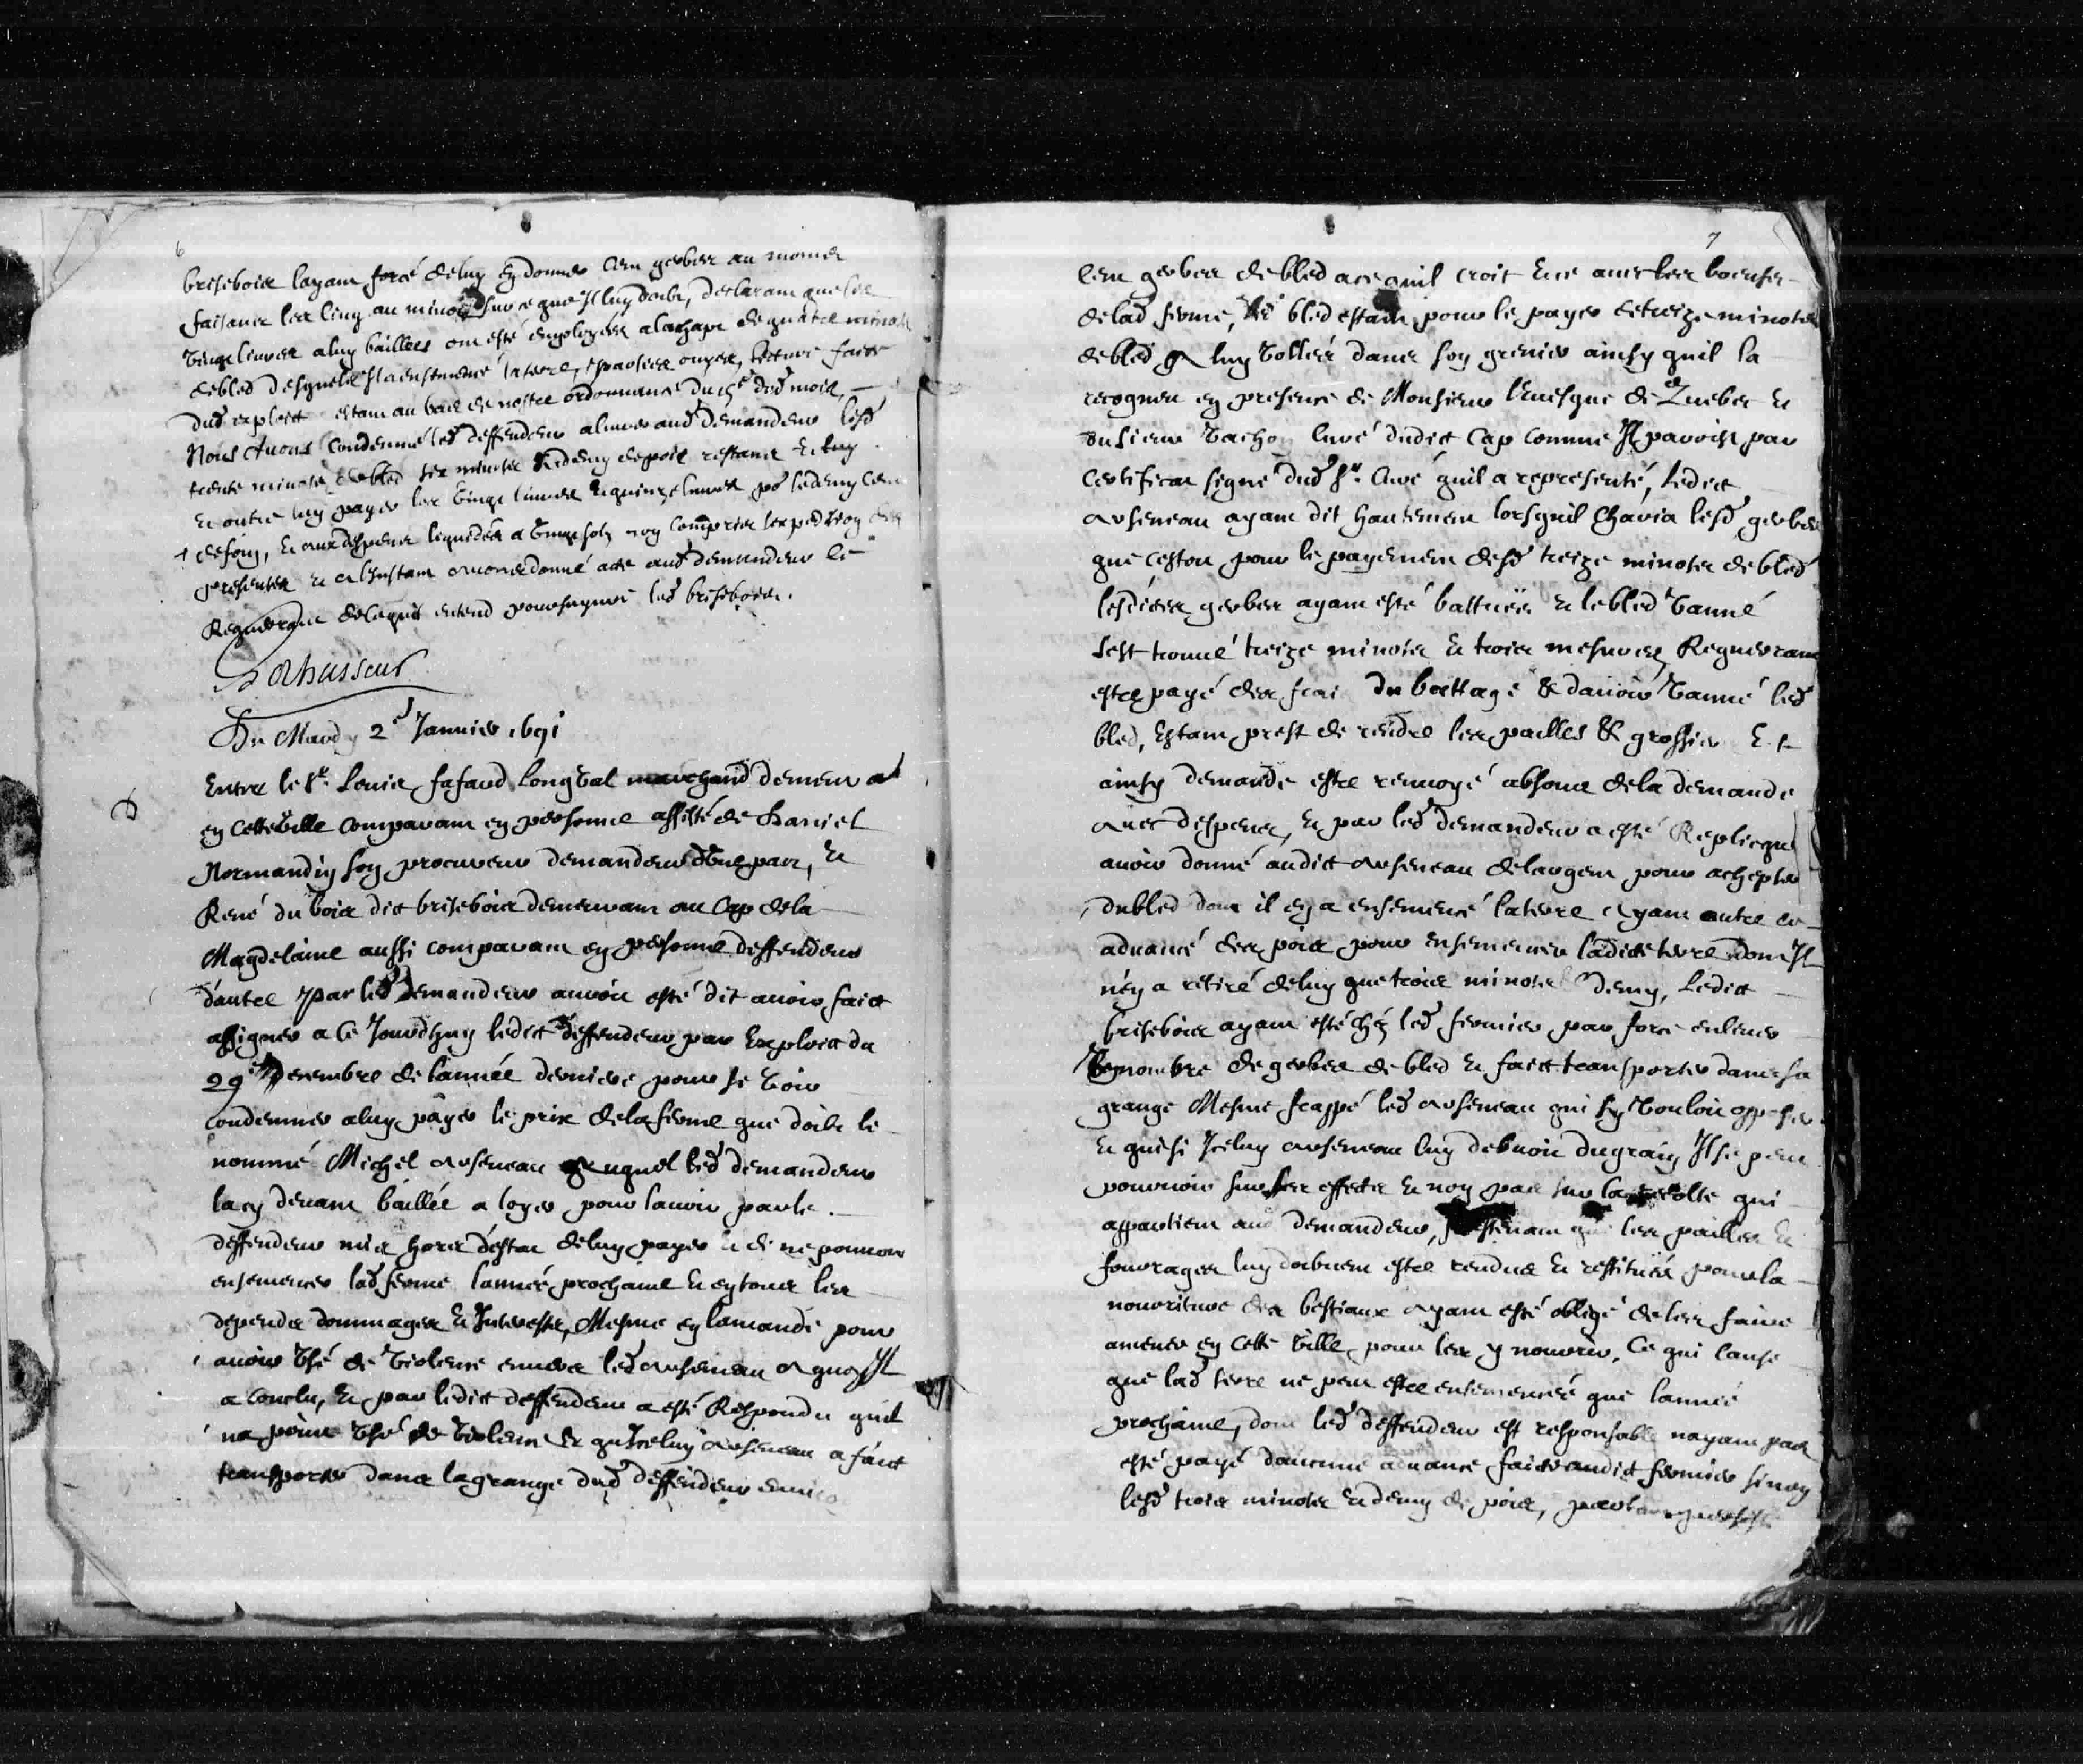 6
briseboies layant forcé deluy en donner cent gerbes au moins
faisans les cinq au minot sur ce que Il luy doibt, declarant que les
vingt livres a luy baillées ont esté employées a lachapt de quatre minots
de bled desquels Il a ensemencé la terre, parties ouyes, lecture faicte
dud exploict estant au bas de nostre ordonnance du dud mois
Nous Avons Condemné led deffendeur a livrer aud demandeur lesd
trente minots de bled six minots & demy de pois restans & luy
& outre luy payer les vingt livres & quinze livres po le demy cent
de foin, & aux despens liquidés a vingt solz non compris lexpedition des
presentes & a linstant avons donné acte aud demandeur le
Requerant de laquit entend poursuyvre led briseboies.
Lechasseur
Du Mardy 2e Janvier 1691
Entre le Sr. Louis fafard Longval marchand demeurant
en cette ville comparant en personne assisté de daniel
Normandin son procureur demandeur d'une part, &
René du bois dit briseboies demeurant au Cap de la
Magdelaine aussi comparant en personne deffendeur
d'autre part led Demandeur auroit esté dit avoir faict
assigner a ce Jourdhuy ledict deffendeur par Exploict du
29e Decembre de lannée derniere pour se voir
condemner a luy payer le prix de la ferme que doibt le
nommé Michel arseneau auquel led demandeur
la cy devant baillée a loyer pour lavoir par le
deffendeur mis hors destat de luy payer & de ne pouvoir
ensemencer lad ferme lannée prochaine & en tous les
depends dommages & Interests, Mesme en lamande pour
avoir Usé de violence envers led arseneau a quoy Il
a conclu, & par ledict deffendeur a esté Respondu quil
na point Usé de violence & qu Iceluy arseneau a faict
transporter dans la grange dud deffendeur
7
Cent gerbes de bled a ce quil croit avec les boeufs
de lad ferme, led bled estant pour le payer de treize minots
de bled a luy vollés dans son grenier ainsy quil la
recogneu en presence de Monsieur Levesque de Quebec &
du sieur vachon curé dudict Cap comme Il paroist par
Certificat signé dud Sr. Curé quil a representé, Ledict
arseneau ayant dit hautement lorsquil charia lesd gerbes
que cestoit pour le payement desd treize minots de bled
lesdictes gerbes ayant esté battuës & le bled vanné
sest trouvé treize minots & trois mesures Requerant
estre payé des frais du battage & davoir vanné led
bled, Estant prest de rendre les pailles & grossier
ainsy demande estre renvoyé absout de la demande
avec despens, & par led demandeur a esté Replicqué
avoir donné audict arseneau de largent pour achepter
du bled dont il en a ensemencé la terre ayant outre ce
advancé des pois pour ensemencer ladicte terre dont Il
n'en a retiré de luy que trois minots Demy, Ledict
briseboies ayant esté chez led fermier par force enlever
Un nombre de gerbes de bled & faict transporter dans sa
grange Mesme frappé led arseneau qui sy vouloit opposer
& que si Iceluy arseneau luy debvoit du grain Il se peut
pourvoir sur ses effects & non pas sur la recolte qui
appartient aud demandeur, que les pailles &
fourrages luy doibvent estre rendus & restitués pour la
nourriture des bestiaux ayant esté obligé de les faire
amener en cette ville pour les y nourrir, Ce qui cause
que lad terre ne peut estre ensemencée que lannée
prochaine, dont led deffendeur est responsable nayant pas
esté payé daucune advance faicte audict fermier sinon
lesd trois minots & demy de pois,